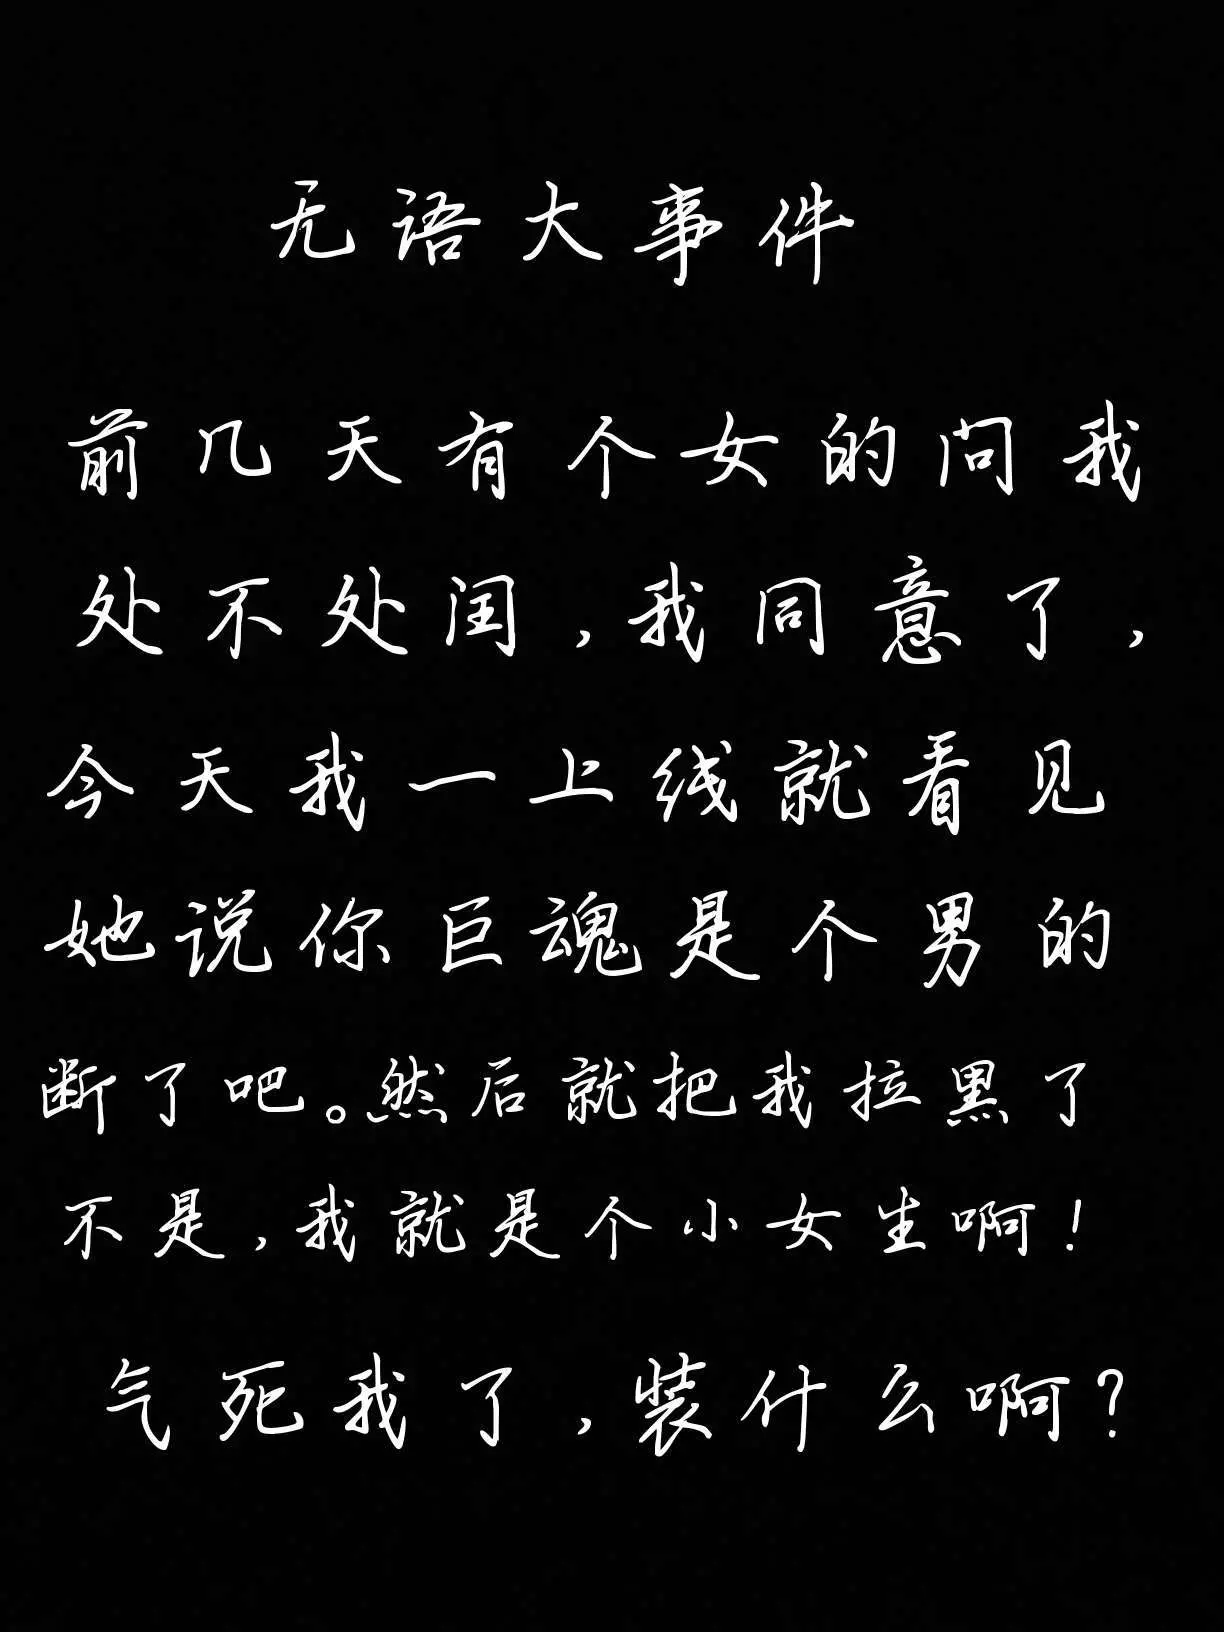 无语大事件
前几天有个女的问我
处不处闺,我同意了,
今天我一上线就看见
她说你巨魂是个男的
断了吧。然后就把我拉黑了
不是,我就是个小女生啊!
气死我了,装什么啊?